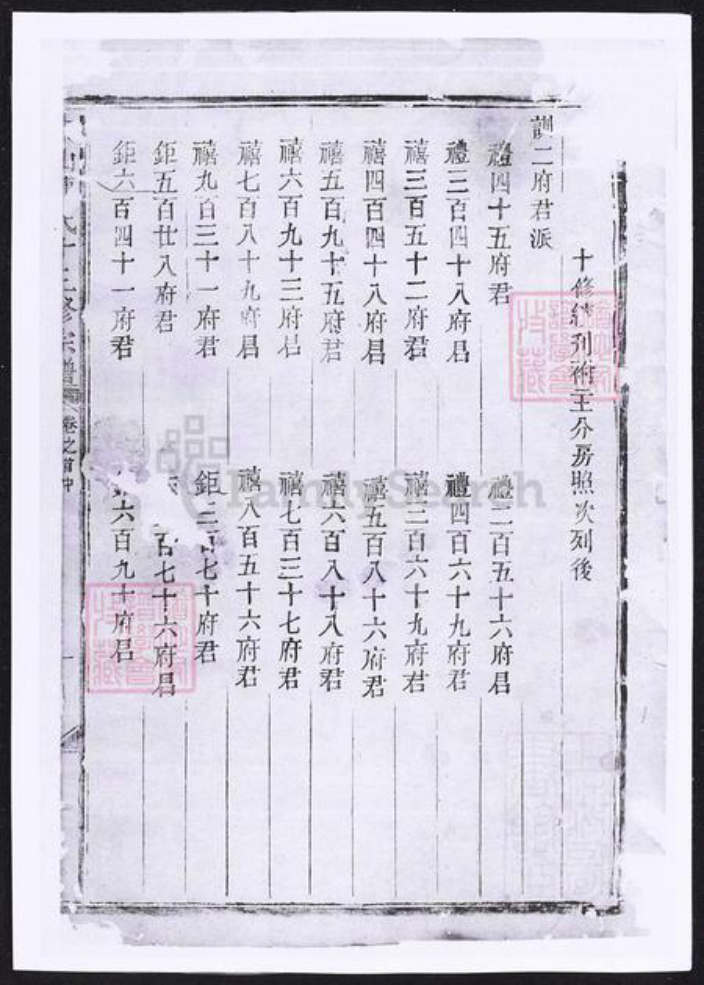 十修列後主分房照次列後
訓二府君派
禮四十五府君
禮二百五十六府君
禮三百四十八府君
禮四百六十九府君
禧三百五十二府君
禧三百六十九府君
禧四百四十八府君
禧五百八十六府君
禧五百九十五府君
禧六百八十八府君
禧六百九十三府君
禧七百三十七府君
禧七百八十九府君
禧八百五十六府君
禧九百三十一府君
鉅三百七十府君
鉅五百廿八府君
百七十六府君
鉅六百四十一府君
六百九十府君
氏十三修宗譜
卷之首中
FamilySearch